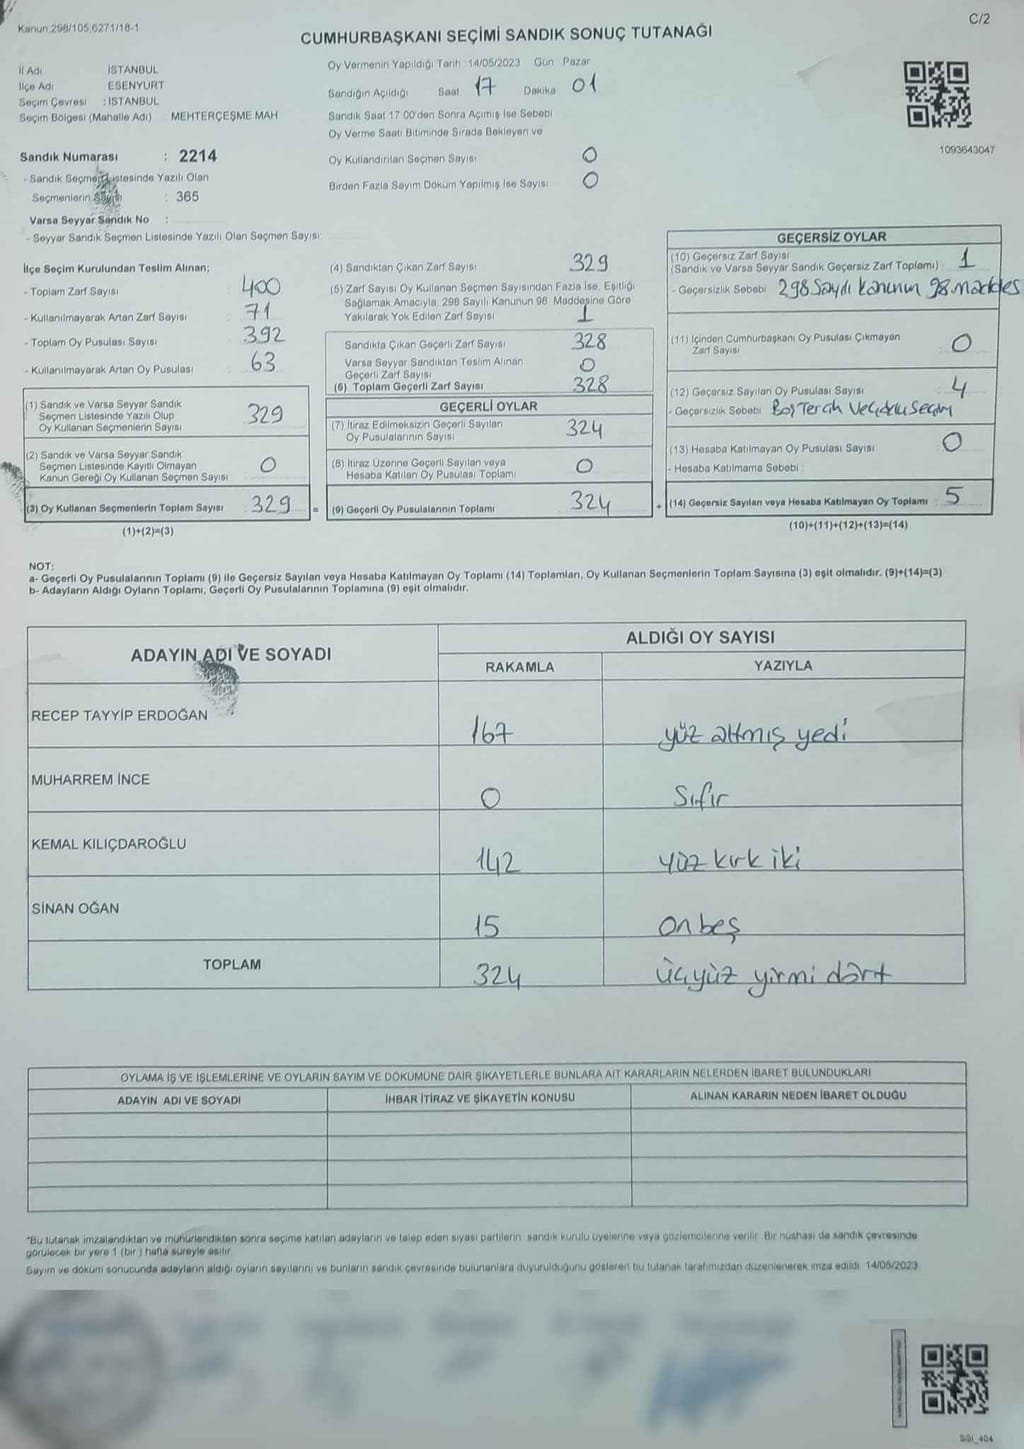 Kanun:298/105,6271/18-1
C/2
CUMHURBAŞKANI SEÇİMİ SANDIK SONUÇ TUTANAĞI
İl Adı İSTANBUL
İlçe Adı ESENYURT
Seçim Çevresi : İSTANBUL
Seçim Bölgesi (Mahalle Adı) MEHTERÇEŞME MAH
Sandık Numarası : 2214
- Sandık Seçmen Listesinde Yazılı Olan
Seçmenlerin Sayısı : 365
Varsa Seyyar Sandık No :
- Seyyar Sandık Seçmen Listesinde Yazılı Olan Seçmen Sayısı:
Oy Vermenin Yapıldığı Tarih :14/05/2023 Gün Pazar
Sandığın Açıldığı Saat 17 Dakika 01
Sandık Saat 17:00'den Sonra Açılmış İse Sebebi
Oy Verme Saati Bitiminde Sırada Bekleyen ve
Oy Kullandırılan Seçmen Sayısı 0
Birden Fazla Sayım Döküm Yapılmış İse Sayısı 0
1093643047
İlçe Seçim Kurulundan Teslim Alınan;
- Toplam Zarf Sayısı : 400
- Kullanılmayarak Artan Zarf Sayısı : 71
- Toplam Oy Pusulası Sayısı : 392
- Kullanılmayarak Artan Oy Pusulası : 63
(1) Sandık ve Varsa Seyyar Sandık
Seçmen Listesinde Yazılı Olup
Oy Kullanan Seçmenlerin Sayısı : 329
(2) Sandık ve Varsa Seyyar Sandık
Seçmen Listesinde Kayıtlı Olmayan
Kanun Gereği Oy Kullanan Seçmen Sayısı : 0
(3) Oy Kullanan Seçmenlerin Toplam Sayısı : 329 =
(1)+(2)=(3)
(4) Sandıktan Çıkan Zarf Sayısı 329
(5) Zarf Sayısı Oy Kullanan Seçmen Sayısından Fazla İse, Eşitliği
Sağlamak Amacıyla, 298 Sayılı Kanunun 98. Maddesine Göre
Yakılarak Yok Edilen Zarf Sayısı 1
Sandıkta Çıkan Geçerli Zarf Sayısı 328
Varsa Seyyar Sandıktan Teslim Alınan
Geçerli Zarf Sayısı 0
(6) Toplam Geçerli Zarf Sayısı 328
GEÇERLİ OYLAR
(7) İtiraz Edilmeksizin Geçerli Sayılan
Oy Pusulalarının Sayısı 324
(8) İtiraz Üzerine Geçerli Sayılan veya
Hesaba Katılan Oy Pusulası Toplamı 0
(9) Geçerli Oy Pusulalarının Toplamı 324 +
GEÇERSİZ OYLAR
(10) Geçersiz Zarf Sayısı
(Sandık ve Varsa Seyyar Sandık Geçersiz Zarf Toplamı) : 1
- Geçersizlik Sebebi 298 Sayılı kanunun 98.maddes
(11) İçinden Cumhurbaşkanı Oy Pusulası Çıkmayan
Zarf Sayısı : 0
(12) Geçersiz Sayılan Oy Pusulası Sayısı : 4
- Geçersizlik Sebebi Boş Tercih Ve Çoklu Seçim
(13) Hesaba Katılmayan Oy Pusulası Sayısı : 0
- Hesaba Katılmama Sebebi :
(14) Geçersiz Sayılan veya Hesaba Katılmayan Oy Toplamı : 5
(10)+(11)+(12)+(13)=(14)
NOT:
a- Geçerli Oy Pusulalarının Toplamı (9) ile Geçersiz Sayılan veya Hesaba Katılmayan Oy Toplamı (14) Toplamları, Oy Kullanan Seçmenlerin Toplam Sayısına (3) eşit olmalıdır. (9)+(14)=(3)
b- Adayların Aldığı Oyların Toplamı, Geçerli Oy Pusulalarının Toplamına (9) eşit olmalıdır.
ADAYIN ADI VE SOYADI
ALDIĞI OY SAYISI
RAKAMLA YAZIYLA
RECEP TAYYİP ERDOĞAN 167 yüz altmış yedi
MUHARREM İNCE 0 Sıfır
KEMAL KILIÇDAROĞLU 142 yüz kırk iki
SİNAN OĞAN 15 on beş
TOPLAM 324 üçyüz yirmi dört
OYLAMA İŞ VE İŞLEMLERİNE VE OYLARIN SAYIM VE DÖKÜMÜNE DAİR ŞİKAYETLERLE BUNLARA AİT KARARLARIN NELERDEN İBARET BULUNDUKLARI
ADAYIN ADI VE SOYADI İHBAR İTİRAZ VE ŞİKAYETİN KONUSU ALINAN KARARIN NEDEN İBARET OLDUĞU
*Bu tutanak imzalandıktan ve mühürlendikten sonra seçime katılan adayların ve talep eden siyasi partilerin sandık kurulu üyelerine veya gözlemcilerine verilir. Bir nüshası da sandık çevresinde
görülecek bir yere 1 (bir) hafta süreyle asılır.
Sayım ve döküm sonucunda adayların aldığı oyların sayılarını ve bunların sandık çevresinde bulunanlara duyurulduğunu gösteren bu tutanak tarafımızdan düzenlenerek imza edildi. 14/05/2023
SGI_404